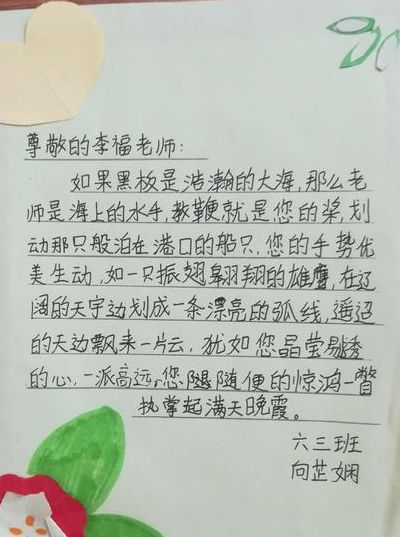 尊敬的李福老师:
如果黑板是浩瀚的大海,那么老
师是海上的水手,教鞭就是您的桨,划
动那只般泊在港口的船只,您的手势优
美生动,如一只振翅翱翔的雄鹰,在辽
阔的天宇边划成一条漂亮的弧线,遥迢
的天边飘来一片云,犹如您晶莹剔透
的心,一派高远,您随便的惊鸿一瞥
执掌起满天晚霞。
六三班
向芷娴